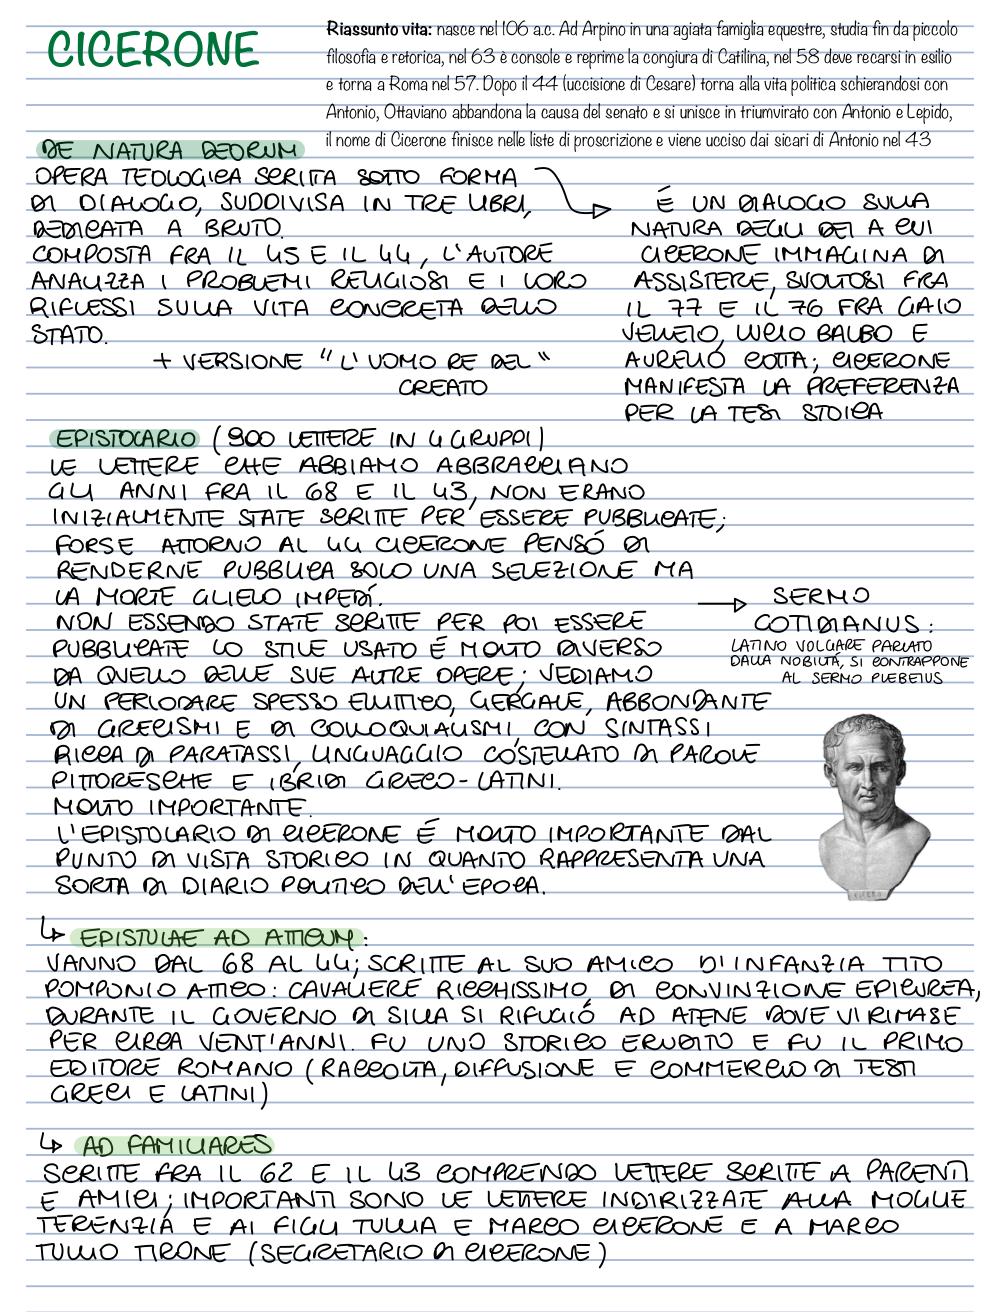 CICERONE
Riassunto vita: nasce nel 106 a.c. Ad Arpino in una agiata famiglia equestre, studia fin da piccolo
filosofia e retorica, nel 63 è console e reprime la congiura di Catilina, nel 58 deve recarsi in esilio
e torna a Roma nel 57. Dopo il 44 (uccisione di Cesare) torna alla vita politica schierandosi con
Antonio, Ottaviano abbandona la causa del senato e si unisce in triumvirato con Antonio e Lepido,
il nome di Cicerone finisce nelle liste di proscrizione e viene ucciso dai sicari di Antonio nel 43
DE NATURA DEORUM
OPERA TEOLOGICA SCRITTA SOTTO FORMA
DI DIALOGO, SUDDIVISA IN TRE LIBRI,
DEDICATA A BRUTO.
COMPOSTA FRA IL 45 E IL 44, L'AUTORE
ANALIZZA I PROBLEMI RELIGIOSI E I LORO
RIFLESSI SULLA VITA CONCRETA DELLO
STATO.
+ VERSIONE "L'UOMO RE DEL "
CREATO
É UN DIALOGO SULLA
NATURA DEGLI DEI A CUI
CICERONE IMMAGINA DI
ASSISTERE, SVOLTOSI FRA
IL 77 E IL 76 FRA GAIO
VELLEIO, LUCIO BALBO E
AURELIO COTTA; CICERONE
MANIFESTA LA PREFERENZA
PER LA TESI STOICA
EPISTOLARIO (900 LETTERE IN 4 GRUPPI)
LE LETTERE CHE ABBIAMO ABBRACCIANO
GLI ANNI FRA IL 68 E IL 43, NON ERANO
INIZIALMENTE STATE SCRITTE PER ESSERE PUBBLICATE;
FORSE ATTORNO AL 44 CICERONE PENSÓ DI
RENDERNE PUBBLICA SOLO UNA SELEZIONE MA
LA MORTE GLIELO IMPEDÍ.
NON ESSENDO STATE SCRITTE PER POI ESSERE
PUBBLICATE LO STILE USATO É MOLTO DIVERSO
DA QUELLO DELLE SUE ALTRE OPERE; VEDIAMO
UN PERIODARE SPESSO ELLITTICO, GERGALE, ABBONDANTE
DI GRECISMI E DI COLLOQUIALISMI, CON SINTASSI
RICCA DI PARATASSI, LINGUAGGIO COSTELLATO DI PAROLE
PITTORESCHE E IBRIDI GRECO-LATINI.
MOLTO IMPORTANTE.
L'EPISTOLARIO DI CICERONE É MOLTO IMPORTANTE DAL
PUNTO DI VISTA STORICO IN QUANTO RAPPRESENTA UNA
SORTA DI DIARIO POLITICO DELL'EPOCA.
SERMO
COTIDIANUS:
LATINO VOLGARE PARLATO
DALLA NOBILTÁ, SI CONTRAPPONE
AL SERMO PLEBEIUS
EPISTULAE AD ATTICUM:
VANNO DAL 68 AL 44; SCRITTE AL SUO AMICO D'INFANZIA TITO
POMPONIO ATTICO: CAVALIERE RICCHISSIMO, DI CONVINZIONE EPICUREA,
DURANTE IL GOVERNO DI SILLA SI RIFUGIÓ AD ATENE DOVE VI RIMASE
PER CIRCA VENT'ANNI. FU UNO STORICO ERUDITO E FU IL PRIMO
EDITORE ROMANO (RACCOLTA, DIFFUSIONE E COMMERCIO DI TESTI
GRECI E LATINI)
AD FAMILIARES
SCRITTE FRA IL 62 E IL 43 COMPRENDO LETTERE SCRITTE A PARENTI
E AMICI; IMPORTANTI SONO LE LETTERE INDIRIZZATE ALLA MOGLIE
TERENZIA E AI FIGLI TULLIA E MARCO CICERONE E A MARCO
TULLIO TIRONE (SEGRETARIO DI CICERONE)